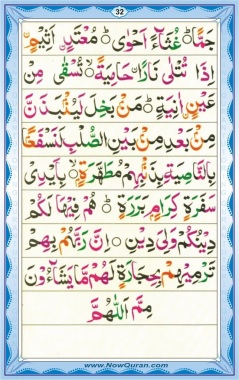 32
جَمًّا ۝ غُثَآءً اَحْوٰى ۝ مُعْتَدٍ اَثِيْمٍ
اِذَا تُتْلٰى نَارًا حَامِيَةً ۝ تُسْقٰى مِنْ
عَيْنٍ اٰنِيَةٍ ۝ مَنْۢ بَخِلَ لَيُنْۢبَذَنَّ
مِنْۢ بَعْدِ مِنْۢ بَيْنِ الصُّلْبِ لَنَسْفَعًۢا
بِالنَّاصِيَةِ بِذَنْۢبِهِمْ مُطَهَّرَةٍ ۝ بِاَيْدِىْ
سَفَرَةٍ كِرَامٍۢ بَرَرَةٍ ۝ هُمْ فِيْهَا لَكُمْ
دِيْنُكُمْ وَلِىَ دِيْنِ ۝ اِنَّ رَبَّهُمْ بِهِمْ
تَرْمِيْهِمْ بِحِجَارَةٍ لَهُمْ مَّا يَشَآءُوْنَ
مِنْهُمْ اَللّٰهُمَّ
www.NowQuran.com